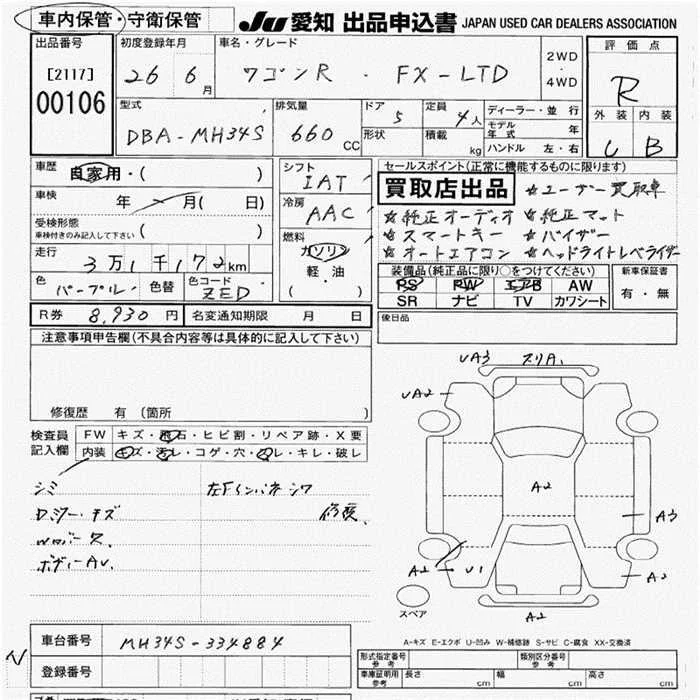 車内保管・守衛保管 JU 愛知 出品申込書 JAPAN USED CAR DEALERS ASSOCIATION
出品番号 [2117] 00106
初度登録年月 26 6月
車名・グレード ワゴンR ・ FX-LTD 2WD・4WD
評価点 R
外装 内装 C B
型式 DBA-MH34S
排気量 660 CC
ドア 5 定員 4人
形状 積載 kg
ディーラー・並行
モデル年式 年
ハンドル 左・右
車歴 自家用・( )
車検 年 月( 日)
受検形態 車検付きのみ記入して下さい ( )
走行 3万1千172km
色 パープル 色替 色コード ZED
シフト IAT
冷房 AAC
燃料 ガソリン 軽・油 ( )
セールスポイント(正常に機能するものに限ります)
買取店出品 ☆ユーザー買取車
☆純正オーディオ ☆純正マット
☆スマートキー ☆バイザー
☆オートエアコン ☆ヘッドライトレベライザー
装備品(純正品に限り○をつけてください) 新車保証書
PS PW エアB AW 有・無
SR ナビ TV カワシート
R券 8,930円 名変通知期限 月 日
後日品
注意事項申告欄(不具合内容等は具体的に記入して下さい)
修復歴 有 (箇所 )
検査員記入欄 FW キズ・飛石・ヒビ割・リペア跡・X要
内装 キズ・汚レ・コゲ・穴・スレ・キレ・破レ
シミ 左Fインパネシワ
ボディーAU.
UA3 スリA1
UA2
A2
A3
A2 U1 A2
スペア A2
A-キズ E-エクボ U-凹み W-補修跡 S-サビ C-腐食 XX-交換済
車台番号 MH34S-334884
登録番号
形式指定番号 参考 類別区分番号 参考
車庫証明用 参考 長さ cm 幅 cm 高さ cm